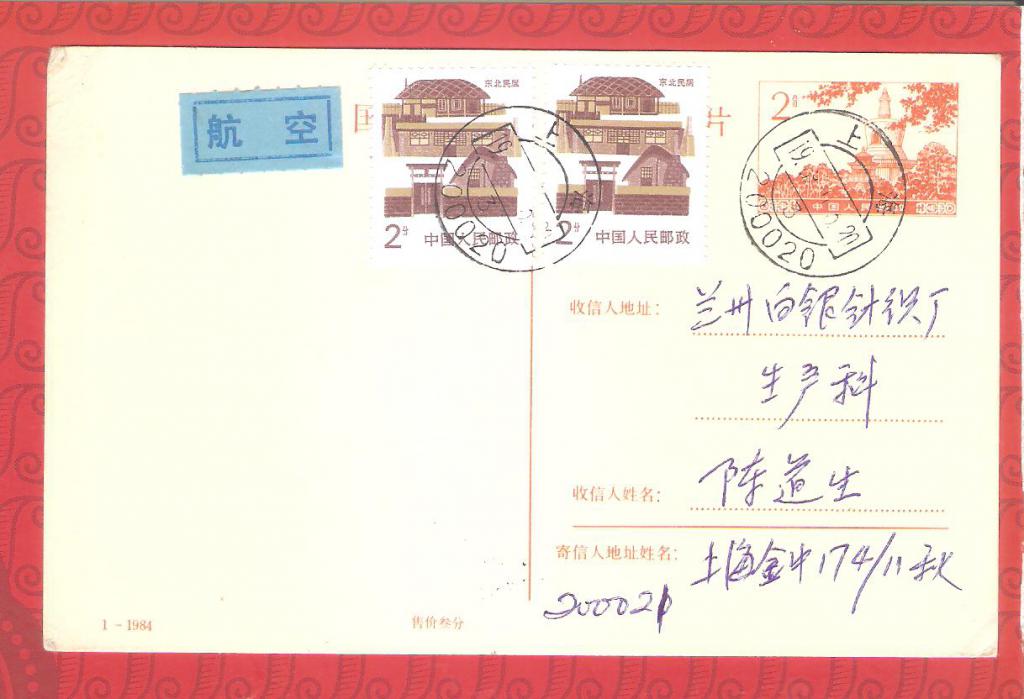 航 空
国
片
东北民居
东北民居
2分
2分 中国人民邮政
2分 中国人民邮政
中国人民邮政
上海
200020
上海
200020
收信人地址：
兰州白银针织厂
生产科
收信人姓名：
陈道生
寄信人地址姓名：
上海金中174/11 秋
200021
1－1984
售价叁分